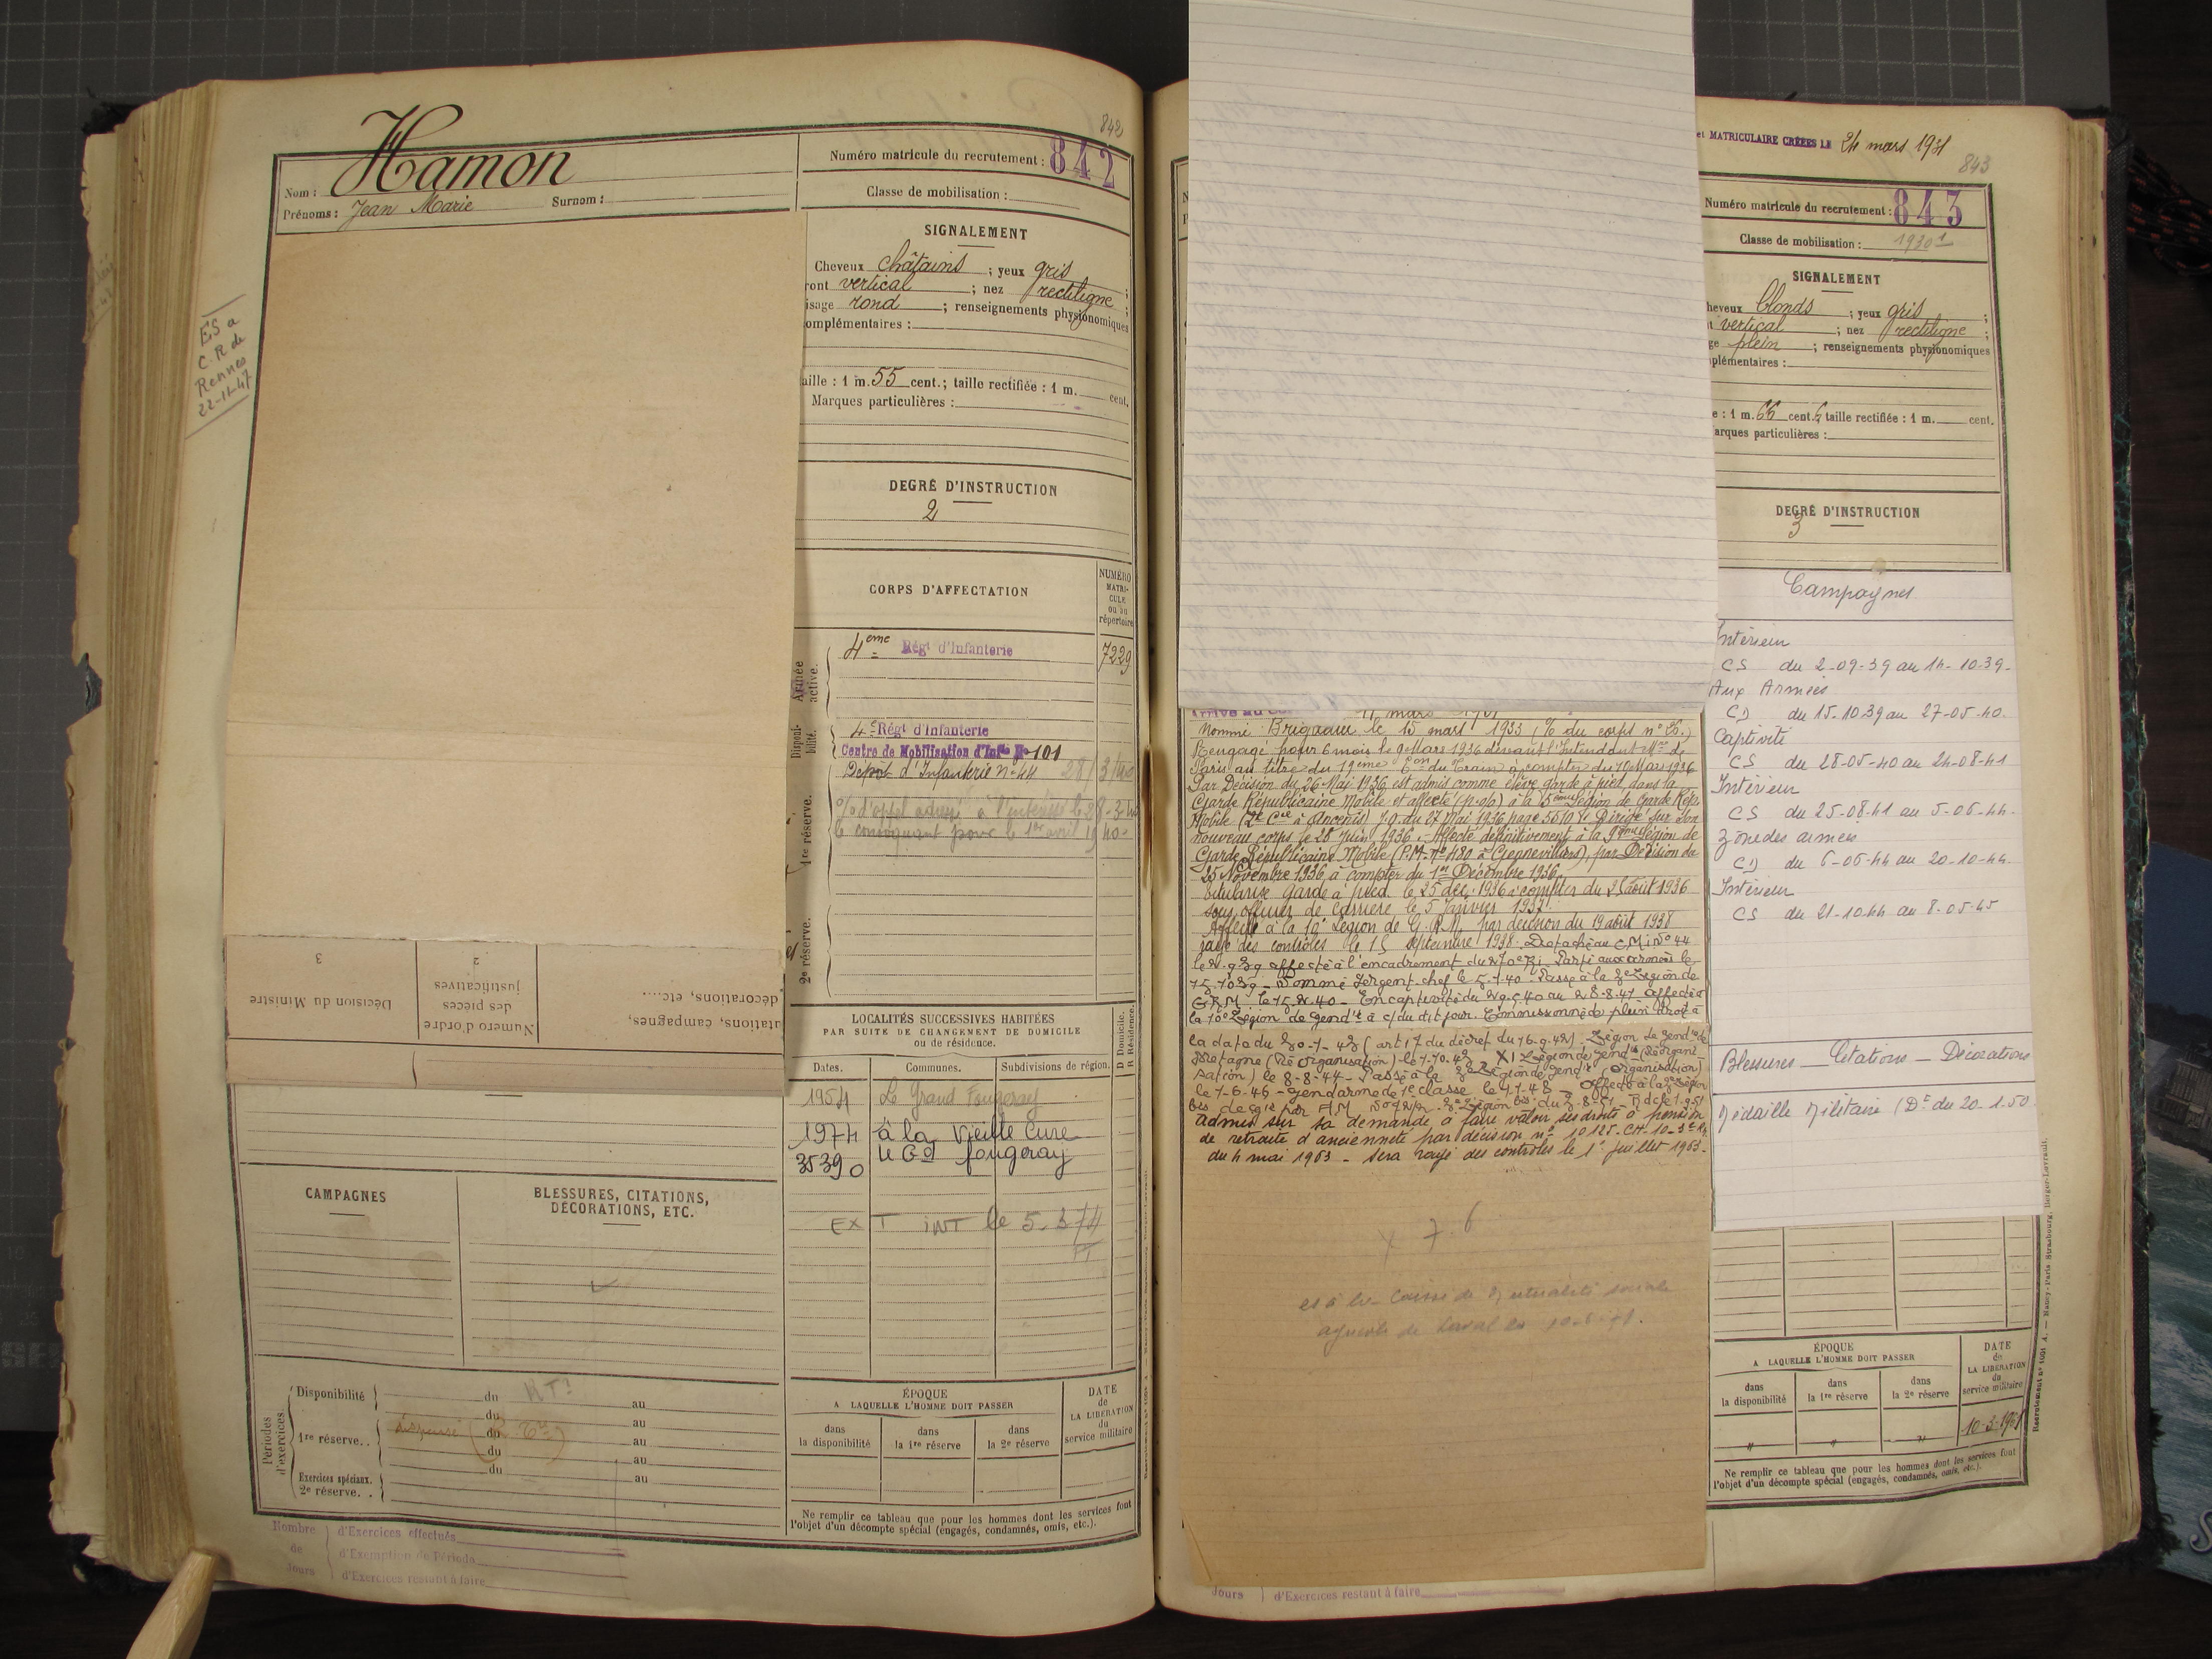 842
Hamon
Nom :
Prénoms : Jean Marie Surnom :
Numéro matricule du recrutement : 842
Classe de mobilisation :
ES a
C.R de
Rennes
22-11-47
SIGNALEMENT
Cheveux châtains ; yeux gris
ront vertical ; nez rectiligne ;
isage rond ; renseignements physionomiques
omplémentaires :
aille : 1 m. 55 cent.; taille rectifiée : 1 m. cent.
Marques particulières :
DEGRÉ D'INSTRUCTION
2
CORPS D'AFFECTATION
NUMÉRO
MATRI-
CULE
ou au
répertoire
Armée active.
4eme Régt d'Infanterie 7229
Disponibilité.
4e Régt d'Infanterie
Centre de Mobilisation d'Infie No 101
1re réserve.
Dépot d'Infanterie n° 44 28/3/40
% d'appel adressé à l'intéressé le 28-3-40
le convoquant pour le 1er avril 1940-
2e réserve.
Décision du Ministre
3
Numéro d'ordre
des pièces
justificatives
2
utations, campagnes,
décorations, etc.....
LOCALITÉS SUCCESSIVES HABITÉES
PAR SUITE DE CHANGEMENT DE DOMICILE
ou de résidence.
D Domicile.
R Résidence.
Dates. Communes. Subdivisions de région.
1954 Le Grand Fougeray
1974 à la Vieille Cure
35390 le Gd fougeray
EXT INT le 5.3.74
CAMPAGNES
BLESSURES, CITATIONS,
DÉCORATIONS, ETC.
Périodes d'exercices.
Disponibilité du au
1re réserve. . du au
du au
du au
Exercices spéciaux. du au
2e réserve. .
ÉPOQUE
A LAQUELLE L'HOMME DOIT PASSER
DATE
de
LA LIBÉRATION
du
service militaire
dans la disponibilité
dans la 1re réserve
dans la 2e réserve
Ne remplir ce tableau que pour les hommes dont les services font
l'objet d'un décompte spécial (engagés, condamnés, omis, etc.).
Nombre de Jours
d'Exercices effectués
d'Exemption de Période
d'Exercices restant à faire
et MATRICULAIRE CRÉÉES LE 24 mars 1931
843
Numéro matricule du recrutement : 843
Classe de mobilisation : 1930
SIGNALEMENT
heveux blonds ; yeux gris ;
t vertical ; nez rectiligne ;
ge plein ; renseignements physionomiques
plémentaires :
e : 1 m. 66 cent. 5 taille rectifiée : 1 m. cent.
arques particulières :
DEGRÉ D'INSTRUCTION
3
Campagnes
Intérieur
CS du 2-09-39 au 14-10-39-
Aux Armées
CD du 15-10-39 au 27-05-40.
Captivité
CS du 28-05-40 au 24-08-41
Intérieur
CS du 25-08-41 au 5-06-44-
Zone des armées
CD du 6-06-44 au 20-10-44-
Intérieur
CS du 21-10-44 au 8-05-45
Blessures _ Citations _ Décorations
Médaille Militaire (Dt du 20-1.50
mars
Nommé Brigadier le 15 mars 1933 (% du corps n° 26.)
Rengagé pour 6 mois le 9 Mars 1936 devant l'Intendant Mre de
Paris au titre du 19ème Eon du Train à compter du 10 Mars 1936
Par Décision du 26 Mai 1936 est admis comme élève garde à pied dans la
Garde Républicaine Mobile et affecté à la 5ème Légion de Garde Répu.
Mobile (2e Cie à Ancenis) J.O. du 27 Mai 1936 page 5510 Dirigé sur son
nouveau corps le 28 Juin 1936. Affecté définitivement à la 9ème Légion de
Garde Républicaine Mobile (P.M. n° 480 à Gennevilliers), par Décision du
25 Novembre 1936 à compter du 1er Décembre 1936.
titularisé garde à pied le 25 déc. 1936 à compter du 28 août 1936
sous officier de carrière le 5 Janvier 1937.
Affecté à la 10e Légion de G.R.M. par décision du 19 août 1938
rayé des contrôles le 15 septembre 1938. Détaché au CMI N° 44
le 2.9.39 affecté à l'encadrement du 270e RI. Parti aux armées le
15.10.39 - Nommé Sergent-chef le 5.1.40 - Passé à la 3e Légion de
GRM le 15.2.40 - En captivité du 29.5.40 au 28.8.41 affecté à
la 10e Légion de gendie à c/du dit jour. Commissionné de plein droit à
la date du 30-1-43 (art 17 du décret du 16.9.42) - Légion de gendie de
Bretagne (Réorganisation) le 1-10-42 XI Légion de gendie (Réorgani-
sation) le 8-8-44 - Passé à la 3e Légion de gendie (organisation)
le 1-6-46 - gendarme de 1e classe le 4-1-48 - affecté à la 3e Légion
admis sur sa demande, à faire valoir ses droits à pension
de retraite d'ancienneté par décision n° 10125-CH-10-3e Rg.
du 4 mai 1963 - Sera rayé des contrôles le 1er juillet 1963-
7.6
es à la Caisse de Mutualité sociale
agricole de Laval
ÉPOQUE
A LAQUELLE L'HOMME DOIT PASSER
DATE
de
LA LIBÉRATION
du
service militaire
dans la disponibilité
dans la 1re réserve
dans la 2e réserve
" " "
Ne remplir ce tableau que pour les hommes dont les services font
l'objet d'un décompte spécial (engagés, condamnés, omis, etc.).
Jours d'Exercices restant à faire